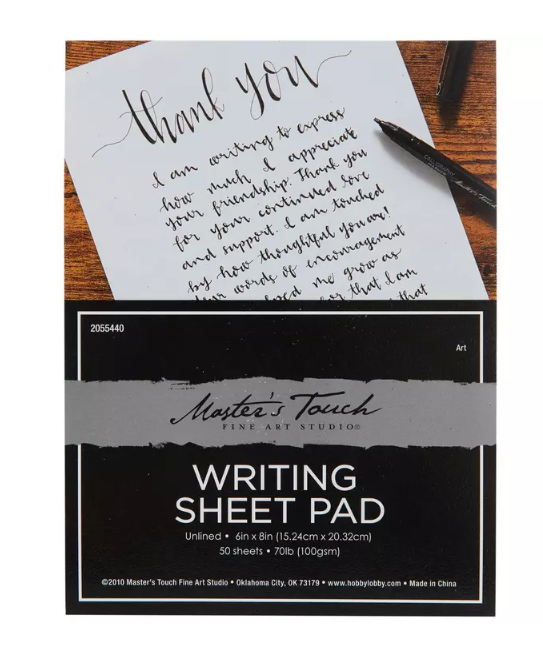 thank you
I am writing to express
how much I appreciate
your friendship. Thank you
for your continued love
and support. I am touched
by how thoughtful you are!
words of encouragement
me grow as
that I am
that
CALLIGRAPHY
Master's Touch
2055440
Art
Master's Touch
FINE ART STUDIO®
WRITING
SHEET PAD
Unlined • 6in x 8in (15.24cm x 20.32cm)
50 sheets • 70lb (100gsm)
©2010 Master's Touch Fine Art Studio • Oklahoma City, OK 73179 • www.hobbylobby.com • Made in China